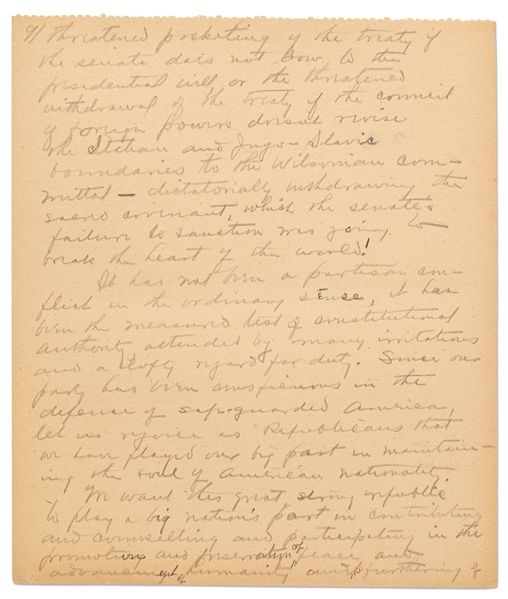 9/ threatened pocketing of the treaty if
the senate does not bow to the
presidential will or the threatened
withdrawal of the treaty if the council
of foreign powers doesnt revise
the Italian and Jugo-Slavic
boundaries to the Wilsonian com-
mittal — dictatorially withdrawing the
sacred covenant, which the senates
failure to sanction was going to
break the heart of the world!
It has not been a partisan con-
flict in the ordinary sense, it has
been the measured test of constitutional
authority attended by many irritations
and a lofty regard for duty. Since our
party has been conspicuous in the
defense of safe-guarded America,
let us rejoice as Republicans that
we have played our big part in maintain-
ing the soul of American nationality.
We want this great strong republic
to play a big nation's part in contributing
and counselling and participating in the
promotion and preservation of peace and
advancement of humanity and furthering of